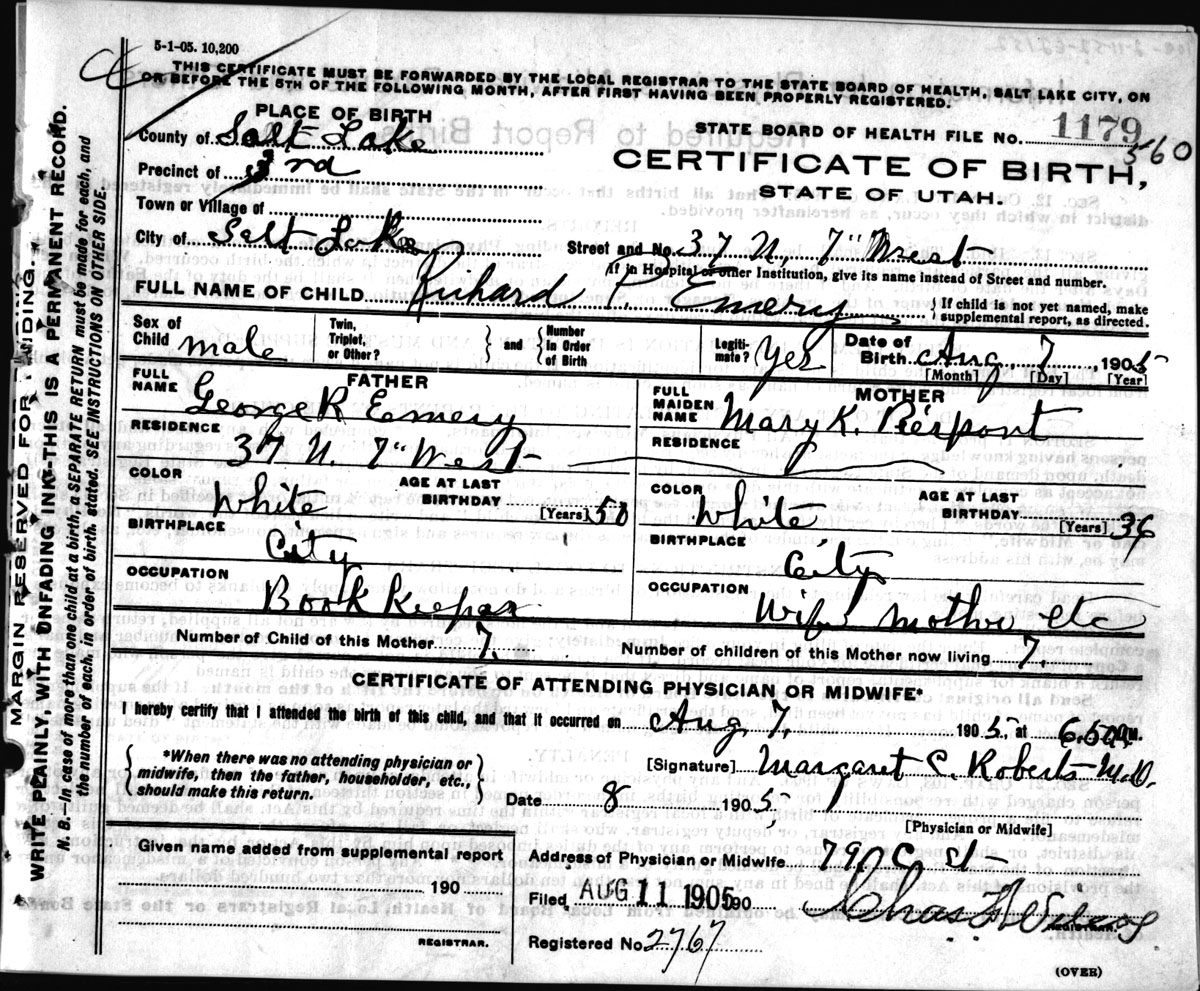 5-1-05. 10,200
THIS CERTIFICATE MUST BE FORWARDED BY THE LOCAL REGISTRAR TO THE STATE BOARD OF HEALTH, SALT LAKE CITY, ON
OR BEFORE THE 5TH OF THE FOLLOWING MONTH, AFTER FIRST HAVING BEEN PROPERLY REGISTERED.
PLACE OF BIRTH
County of Salt Lake
STATE BOARD OF HEALTH FILE No. 1179
560
Precinct of 3rd
CERTIFICATE OF BIRTH,
STATE OF UTAH.
Town or Village of
City of Salt Lake
Street and No. 37 N. 7" West
If in Hospital or other Institution, give its name instead of Street and number.
FULL NAME OF CHILD Richard P. Emery
{ If child is not yet named, make supplemental report, as directed.
Sex of Child male
Twin, Triplet, or Other? } and { Number in Order of Birth
Legiti- mate? Yes
Date of Birth Aug. 7, 1905
[Month] [Day] [Year]
FATHER
FULL NAME George R Emery
MOTHER
FULL MAIDEN NAME Mary K. Pierpont
RESIDENCE 37 N. 7" West
RESIDENCE
COLOR White
AGE AT LAST BIRTHDAY [Years] 50
COLOR White
AGE AT LAST BIRTHDAY [Years] 36
BIRTHPLACE City
BIRTHPLACE City
OCCUPATION Book Keeper
OCCUPATION Wife mother etc
Number of Child of this Mother 7.
Number of children of this Mother now living 7.
CERTIFICATE OF ATTENDING PHYSICIAN OR MIDWIFE*
I hereby certify that I attended the birth of this child, and that it occurred on Aug 7. 1905, at 6.50 A M.
{ *When there was no attending physician or midwife, then the father, householder, etc., should make this return. }
[Signature] Margaret C. Roberts M.D.
Date 8 1905
[Physician or Midwife]
Given name added from supplemental report
190
REGISTRAR.
Address of Physician or Midwife 79 C St
Filed AUG 11 1905 190
REGISTRAR.
Registered No. 2767
(OVER)
MARGIN RESERVED FOR BINDING
WRITE PLAINLY WITH UNFADING INK-THIS IS A PERMANENT RECORD.
N. B.-In case of more than one child at a birth, a SEPARATE RETURN must be made for each, and
the number of each, in order of birth, stated. SEE INSTRUCTIONS ON OTHER SIDE.